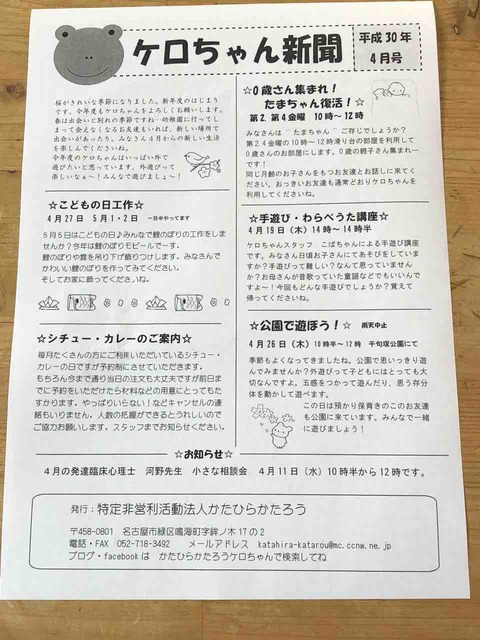 ケロちゃん新聞
平成30年
4月号
桜がきれいな季節になりました。新年度のはじまり
です。今年度もケロちゃんをよろしくお願いします。
春は出会いと別れの季節ですね…幼稚園に行ってし
まって会えなくなるお友達もいれば、新しい場所で
出会いがあったり。みなさん4月からの新しい生活
を楽しんでくださいね。
今年度のケロちゃんはいっぱい外で
遊びたいと思っています。外遊びって
楽しいなぁ〜!みんなで遊びましょ〜!
☆こどもの日工作☆
4月27日 5月1・2日 一日中やってます
5月5日はこどもの日♪みんなで鯉のぼりの工作をしま
せんか?今年は鯉のぼりモビールです。
鯉のぼりや雲を吊り下げ飾りつけします。みなさんで
かわいい鯉のぼりを作ってみてください。
そしてお家に飾ってくださいね。
☆シチュー・カレーのご案内☆
毎月たくさんの方にご利用いただいているシチュー・
カレーの日ですが予約制にさせていただきます。
もちろん今まで通り当日の注文も大丈夫ですが前日ま
でに予約をいただけたら材料などの用意にとってもた
すかります。やっぱりいらない!などキャンセルの連
絡もいりません。人数の把握ができるとうれしいので
ご協力お願いします。スタッフまでお知らせください。
☆0歳さん集まれ!
たまちゃん復活!☆
第2、第4金曜 10時〜12時
みなさんは"たまちゃん"ご存じでしょうか?
第2.4金曜の10時〜12時滑り台の部屋を利用して
0歳さんのお部屋にします。0歳の親子さん集まれー
です!
同じ月齢のお子さんをもつお友達とお話しに来てくだ
さい。おっきいお友達も通常どおりケロちゃんを
利用してくださいね。
☆手遊び・わらべうた講座☆
4月19日(木)14時〜14時半
ケロちゃんスタッフ こばちゃんによる手遊び講座
です。みなさん日頃お子さんにてあそびをしてい
ますか?手遊びって難しい?なんて思っていません
か?お母さんが昔歌っていた童謡などでもいいんで
すよ〜!今回もどんな手遊びでしょうか?覚えて
帰ってくださいね。
☆公園で遊ぼう!☆ 雨天中止
4月26日(木)10時半〜12時 千句塚公園にて
季節もよくなってきましたね。公園で思いっきり遊
んでみませんか?外遊びって子どもにはとっても大
切なんですよ。五感をつかって遊んだり、思う存分
体を動かして遊べます。
この日は預かり保育きのこのお友達
も公園に来ています。みんなで一緒
に遊びましょう!
☆お知らせ☆
4月の発達臨床心理士 河野先生 小さな相談会 4月11日(水)10時半から12時です。
発行:特定非営利活動法人かたひらかたろう
〒458-0801 名古屋市緑区鳴海町字鉾ノ木17の2
電話・FAX 052-718-3492 メールアドレス katahira-katarou@mc.ccnw.ne.jp
ブログ・facebookは かたひらかたろうケロちゃんで検索してね